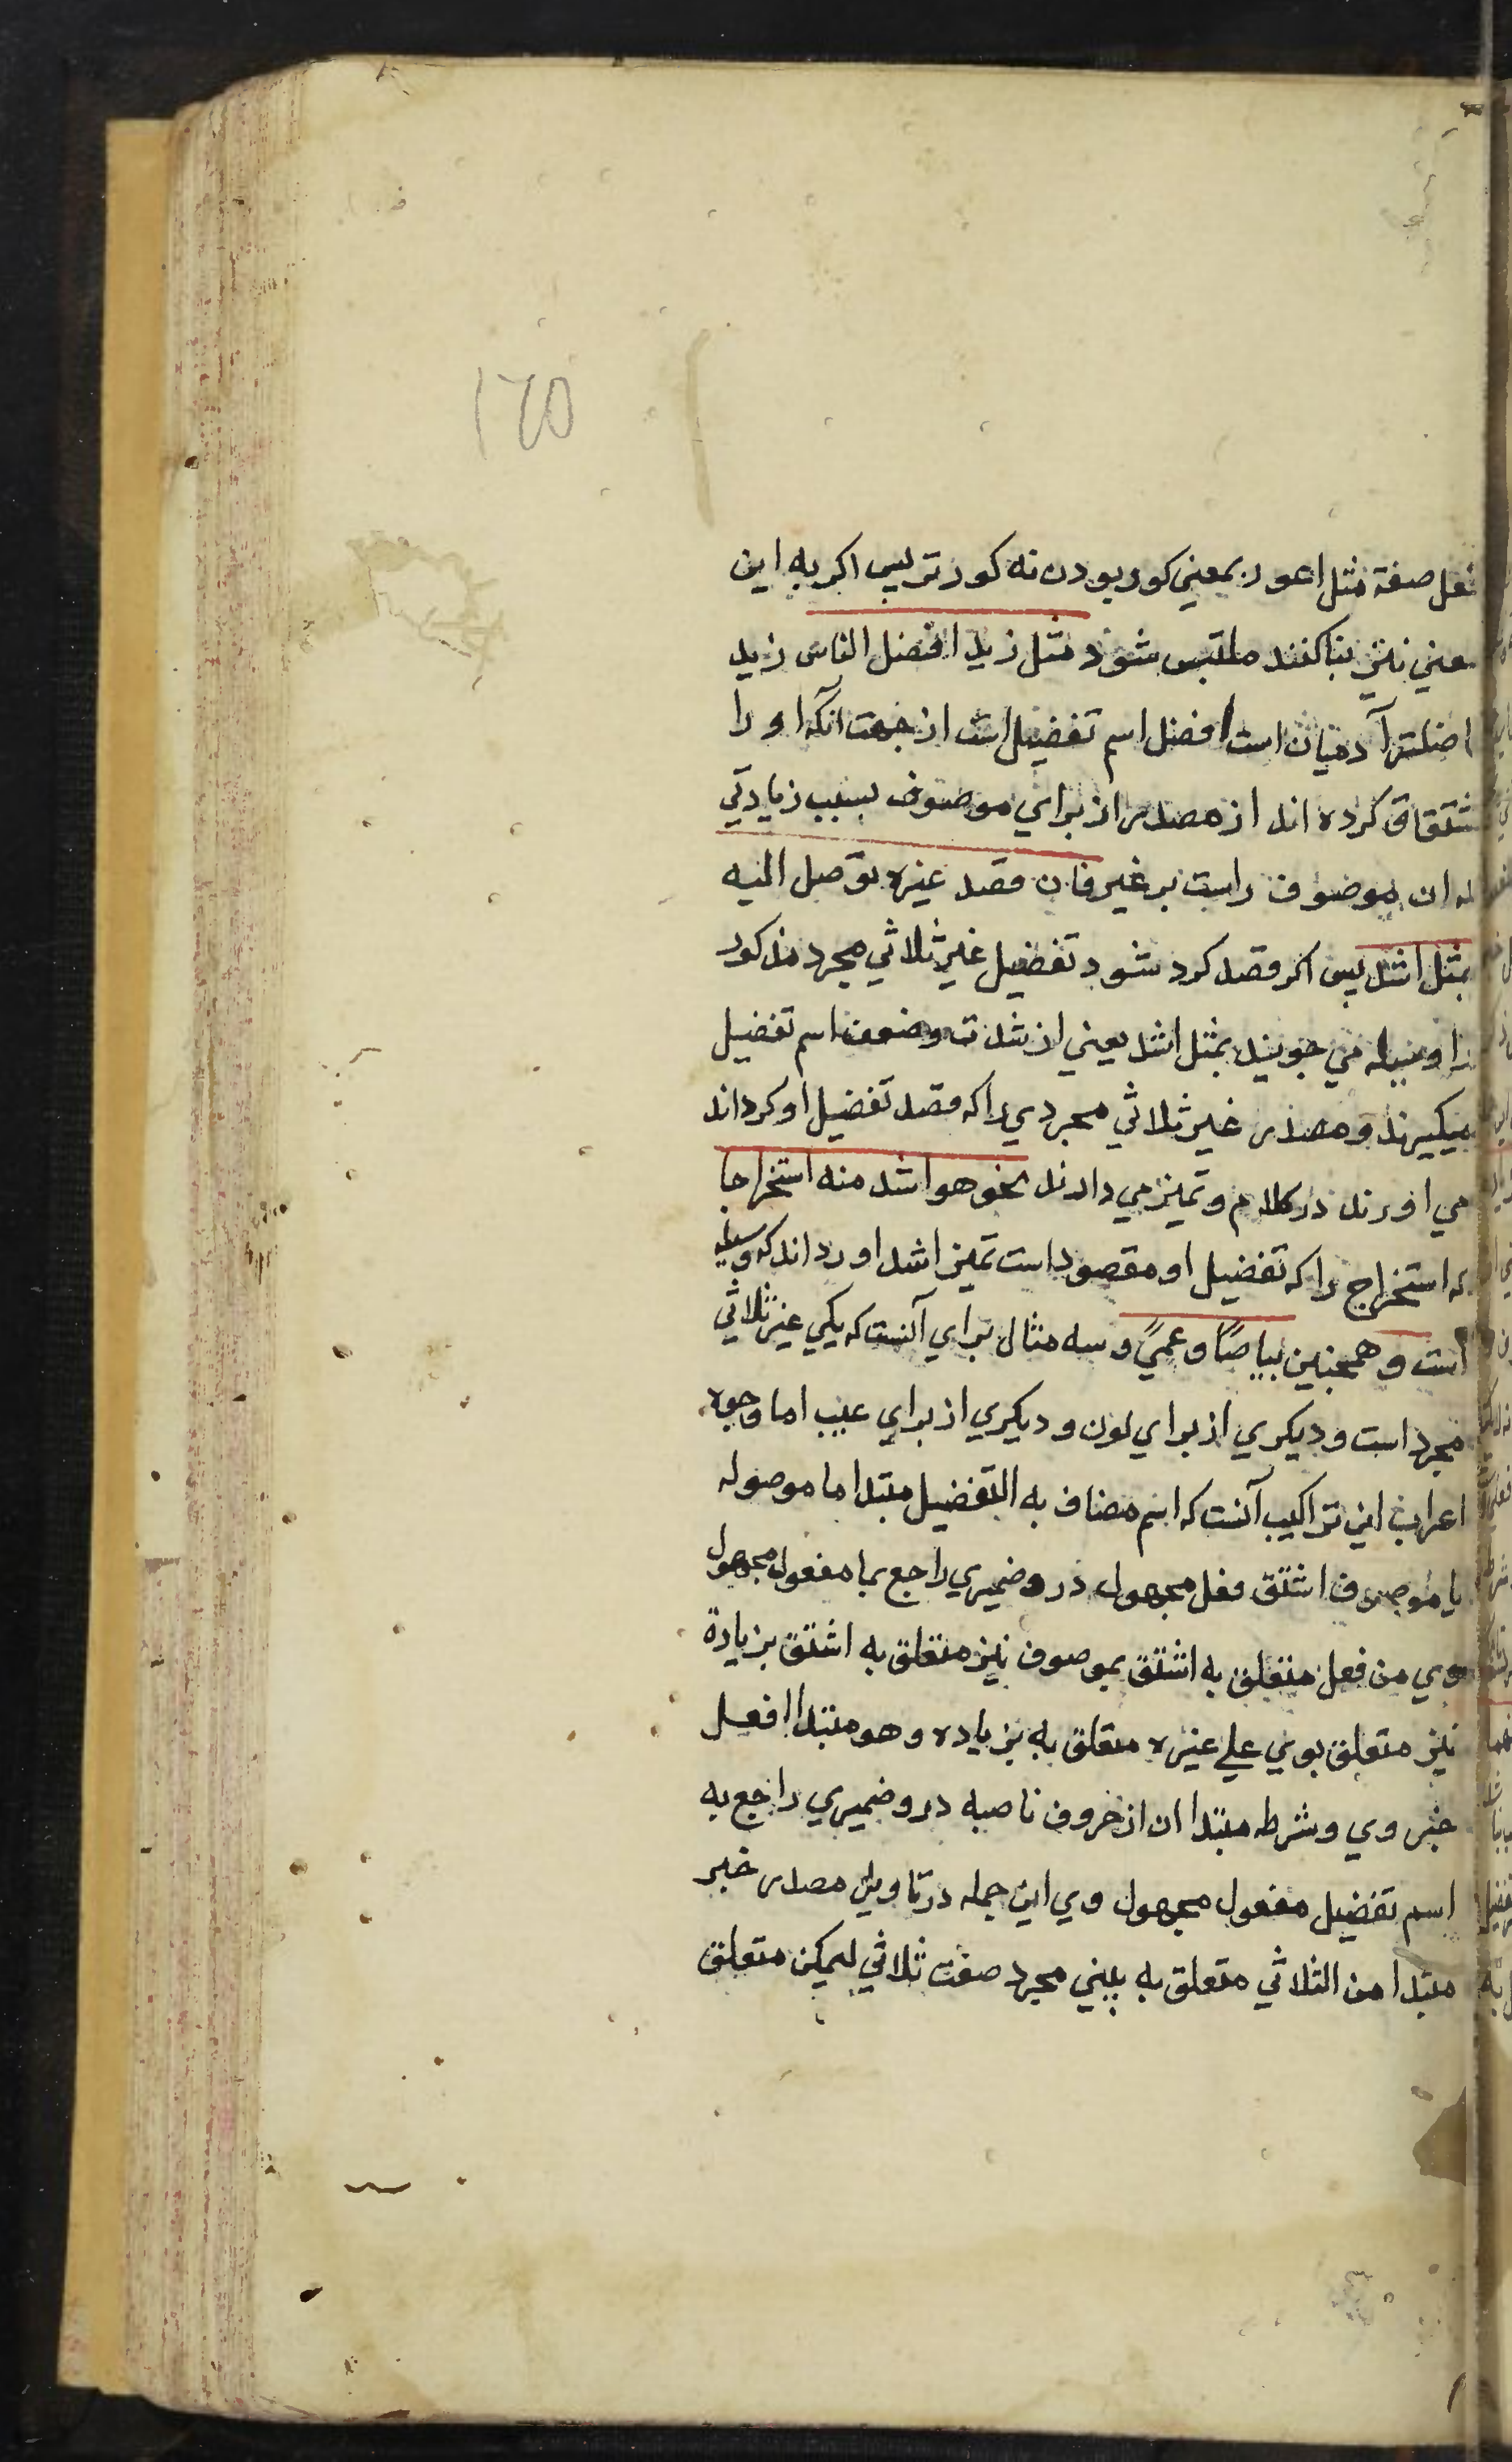 170
افعل صفة مثل اعور بمعني كور بودن نه كورتر پس اكر به اين
معني نيز بنا كنند ملتبس شود مثل زيد افضل الناس زيد
اضلتر آدميان است افضل اسم تفضيل است از جهت انكه او را
اشتقاق كرده اند از مصدر از براي موصوف بسبب زيادتي
كه ان موصوف راست بر غير فان قصد غيره توصل اليه
بمثل اشد پس اكر قصد كرد شود تفضيل غير ثلاثي مجرد مذكور
را وسيله مي جويند بمثل اشد يعني از شدت وضعف اسم تفضيل
ميكيرند و مصدر غير ثلاثي مجردي را كه قصد تفضيل او كرداند
مي اورند در كلام و تميز مي دارند نحو هو اشد منه استخراجا
كه استخراج را كه تفضيل او مقصود است تميز اشد اورداند كه وسيله
است و همچنين بياضًا و عميً و سه مثال براي آنست كه يكي غير ثلاثي
مجرد است و ديكري از براي لون و ديكري از براي عيب اما وجوه
اعراب اين تراكيب آنست كه اسم مضاف به التفضيل مبتدا ما موصوله
يا موصوف اشتق فعل مجهول درو ضميري راجع بما مفعول مجهول
وي من فعل متعلق به اشتق بموصوف نيز متعلق به اشتق بزيادة
نيز متعلق بوي علي غيره متعلق به بزياده و هو مبتدا افعل
خبر وي و شرطه مبتدا ان از حروف ناصبه درو ضميري راجع به
اسم تفضيل مفعول مجهول وي اين جمله در تاويل مصدر خبر
مبتدا من الثلاثي متعلق به يبني مجرد صفت ثلاثي ليمكن متعلق